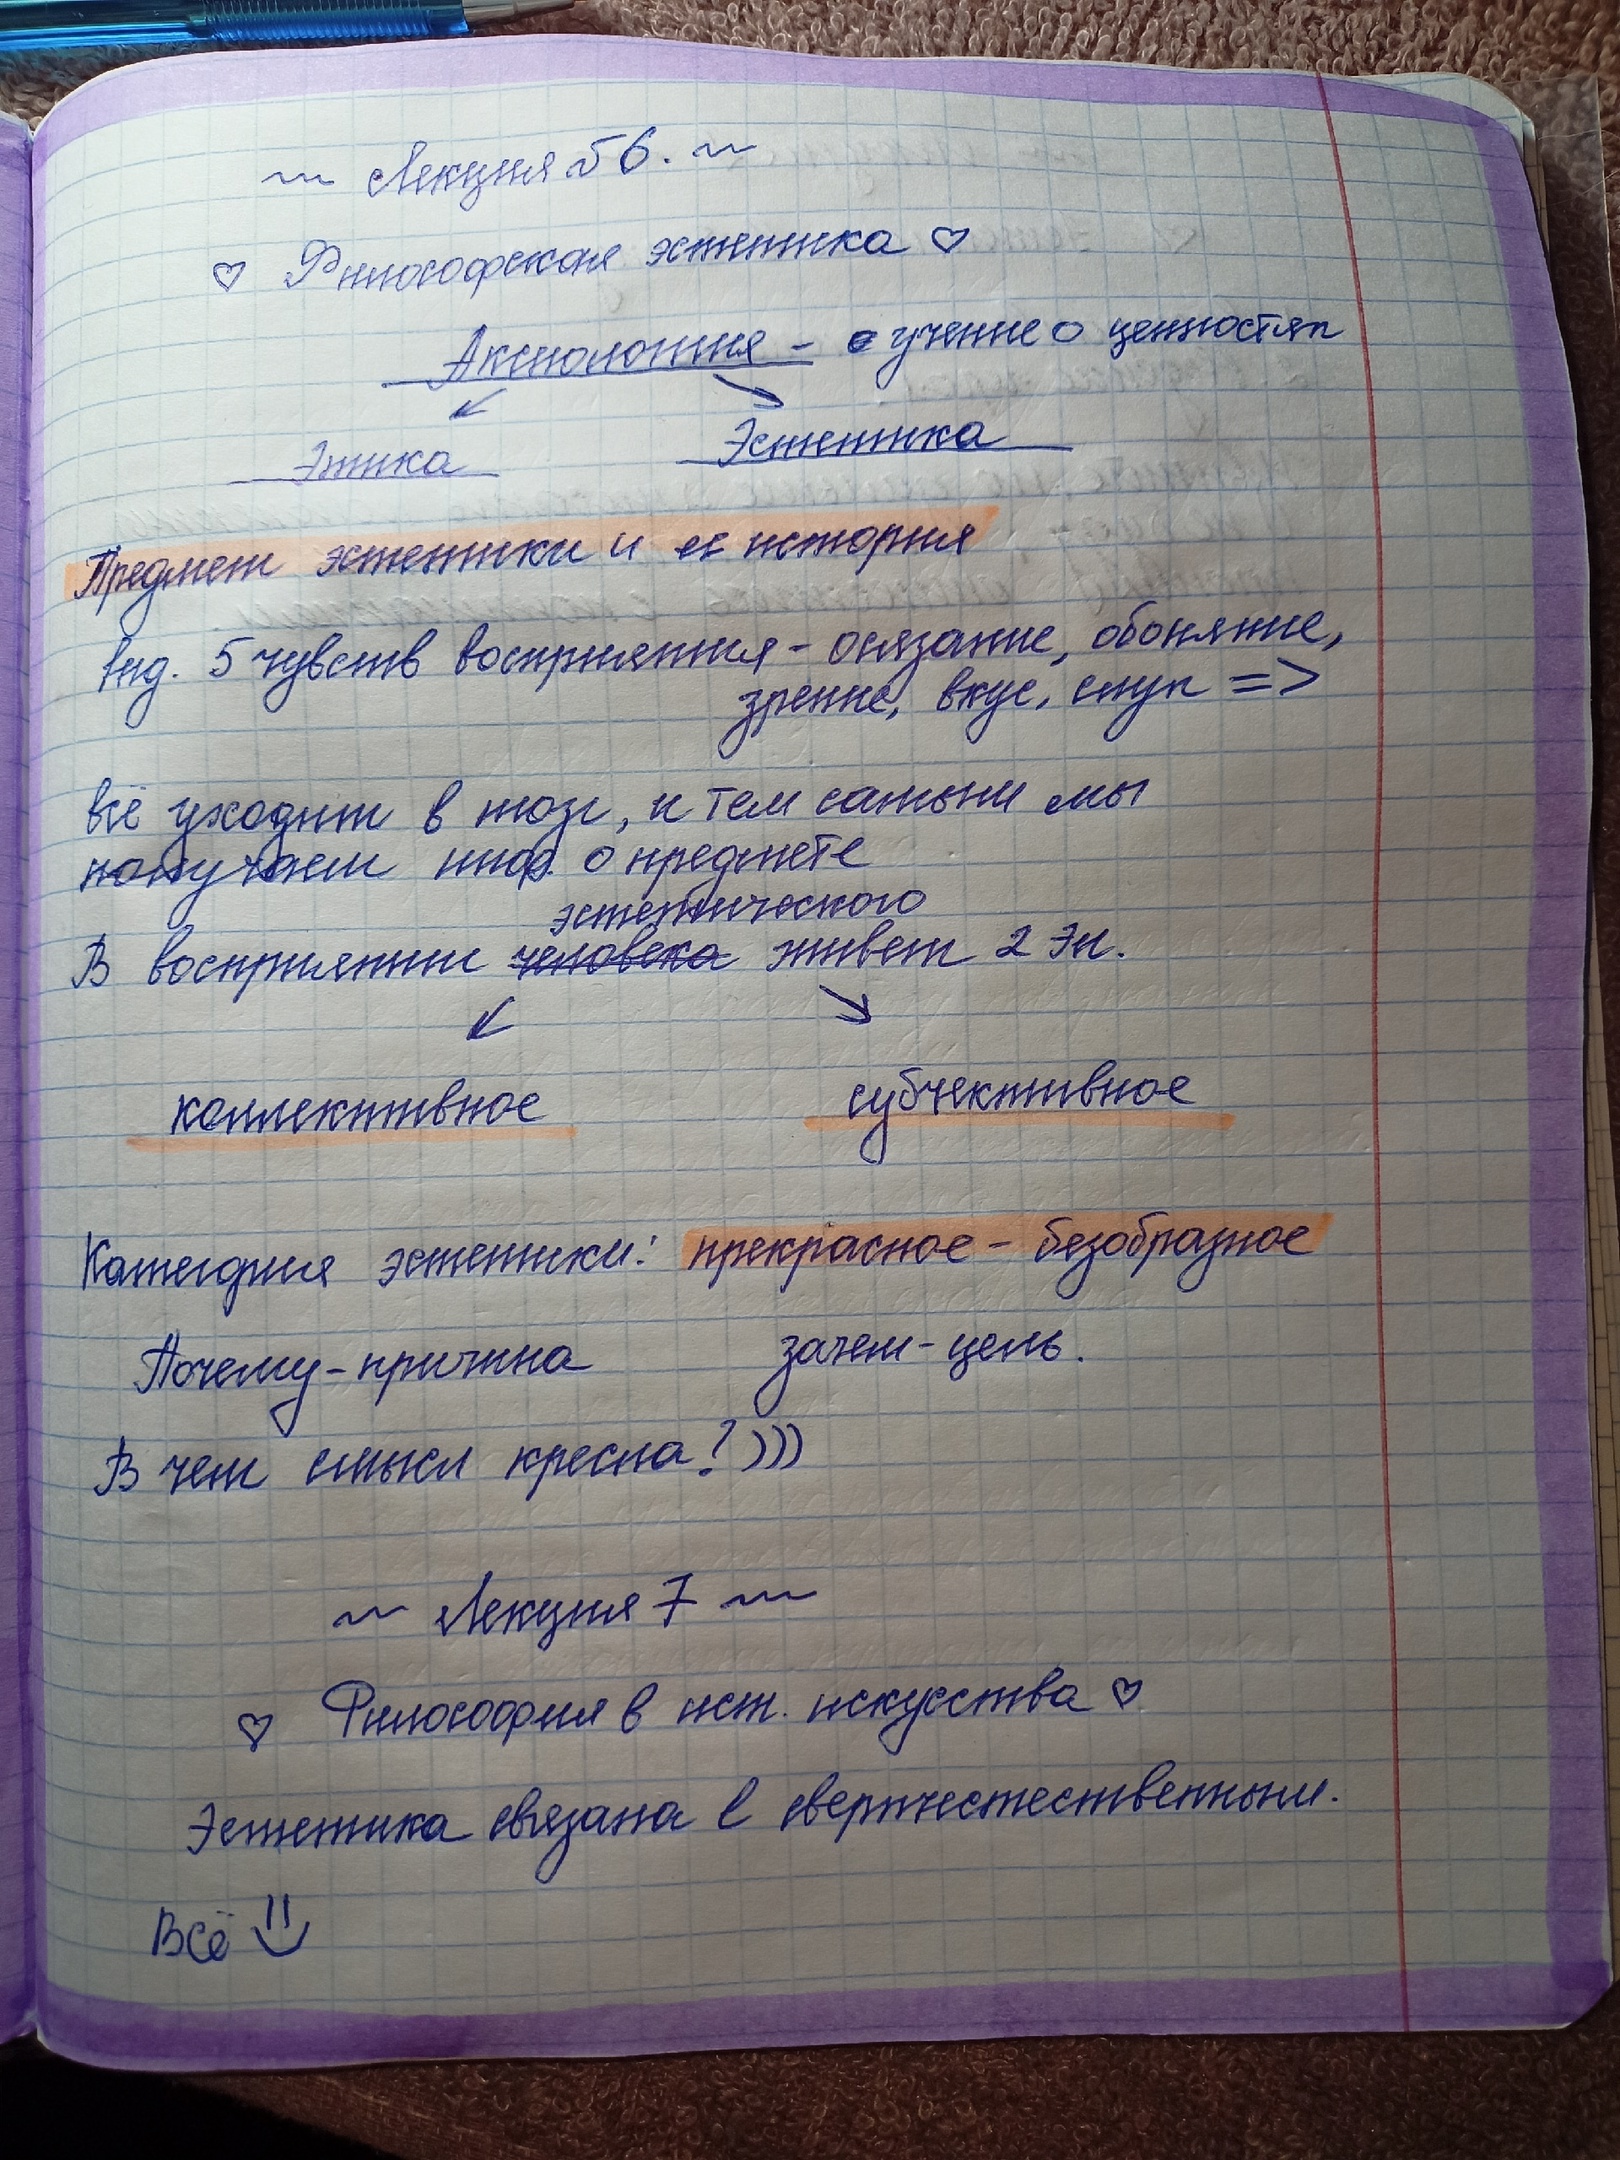 ~ Лекция №6. ~
♡ Философская эстетика ♡
Аксиология - учение о ценностях
Этика Эстетика
Предмет эстетики и ее история
5 чувств восприятия - осязание, обоняние,
зрение, вкус, слух =>
всё уходит в мозг, и тем самым мы
получаем инф. о предмете
эстетического
В восприятии человека живет 2 эл.
коллективное субъективное
Категория эстетики: прекрасное - безобразное
Почему - причина зачем - цель.
В чем смысл кресла?)))
~ Лекция 7 ~
♡ Философия в ист. искусства ♡
Эстетика связана с сверхъестественным.
Всё